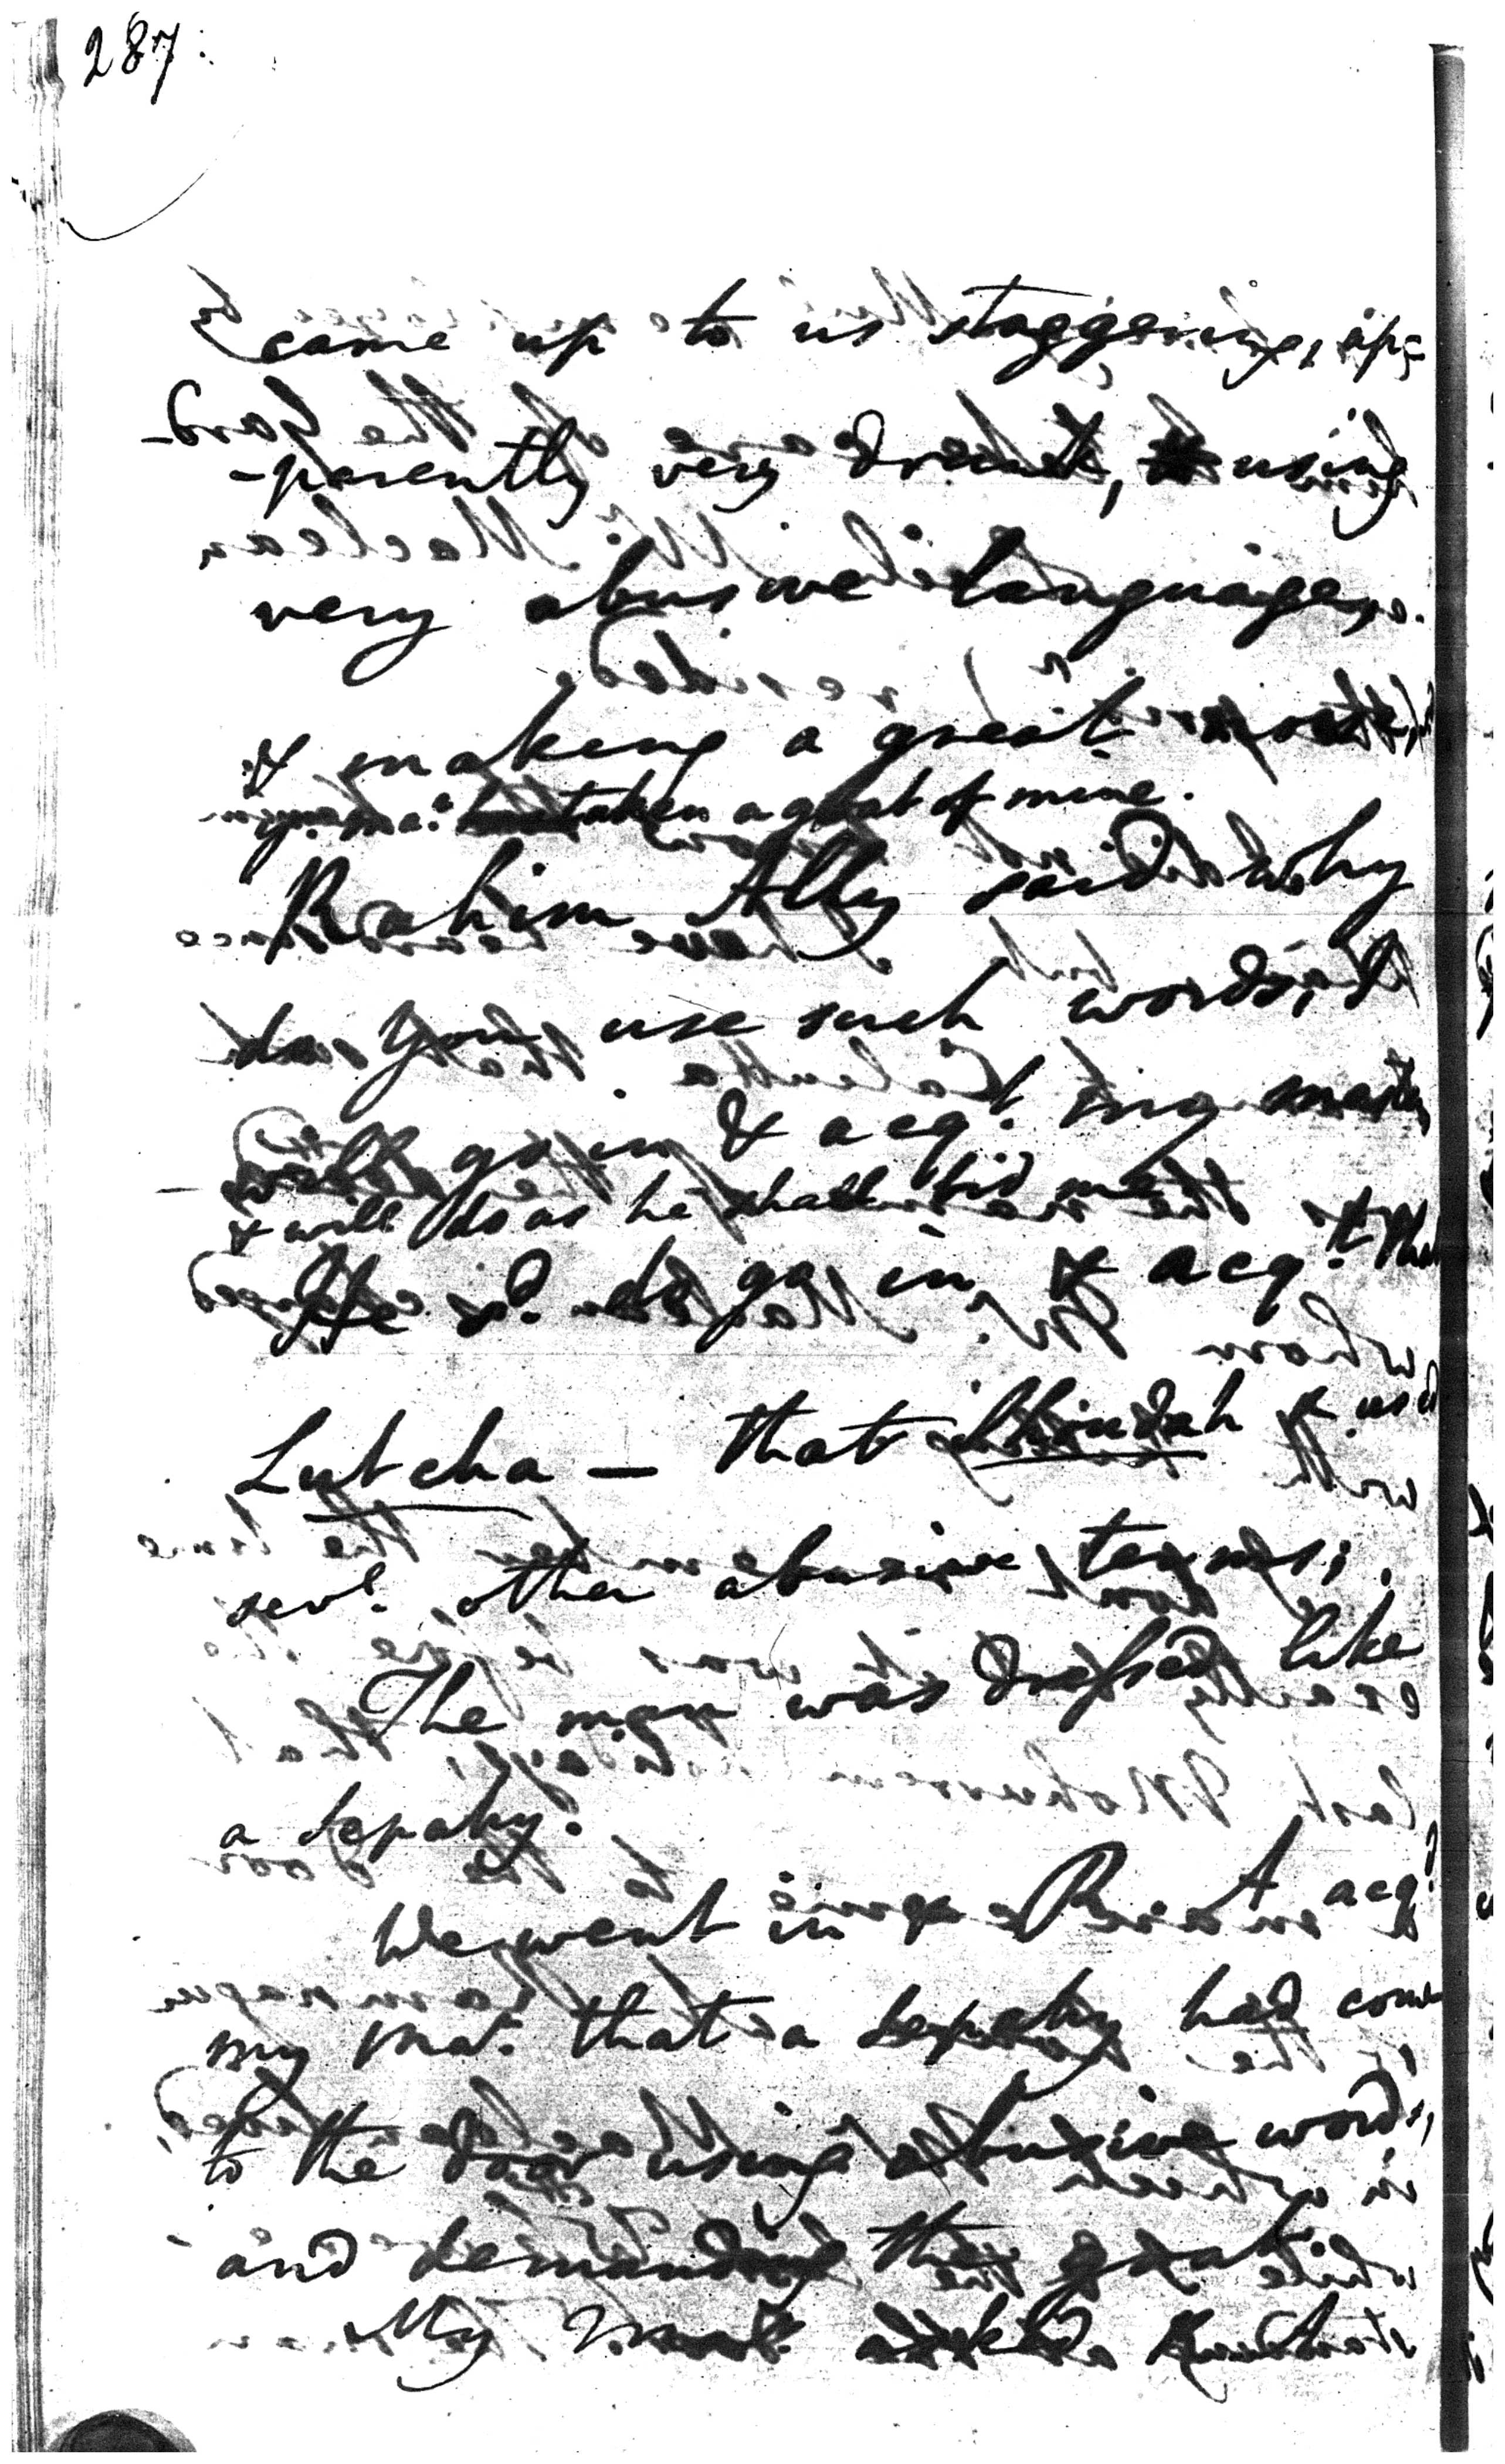 287
came up to us staggering, ap=
-parently very drunk, using
very abusive language,
& making a great
taken a goat of mine.
Rahim Ally said why
do you use such words, I
will go in & acqt. my master
& will do as he shall bid me
He sd. do go in & acqt. that
Lutcha — that & used
sevl. other abusive terms;
The man was dressed like
a sepahy.
We went in & R A acqd.
my Mar. that a sepahy had come
to the door using abusive words,
and demanding the goat.
My Mar. asked